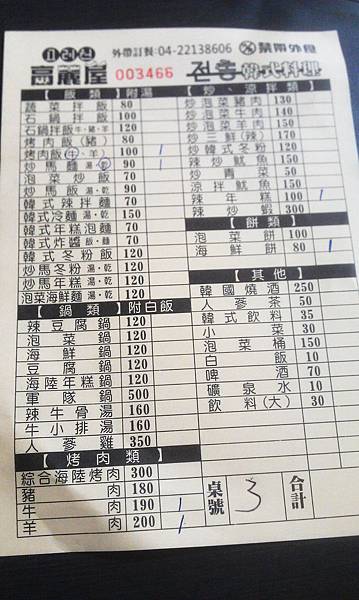 고려정 外帶訂餐:04-22138606 禁帶外食
高麗屋 003466 전통 韓式料理
【飯類】附湯
蔬菜拌飯 80
石鍋拌飯 100
石鍋拌飯牛,豬,羊 120
烤肉飯(豬) 80
烤肉飯(牛、羊) 100 /
炒馬麵 湯,乾 90 /
泡菜炒飯 70
炒馬飯 湯,乾 90
韓式辣拌麵 70
韓式冷麵 湯,乾 150
韓式年糕泡麵 70
韓式炸醬 飯,麵 70
韓式冬粉飯 120
炒馬冬粉 湯,乾 120
炒馬年糕 湯,乾 120
泡菜海鮮麵 湯,乾 120
【鍋類】附白飯
辣豆腐鍋 120
泡菜鍋 120
海鮮鍋 120
豆腐鍋 120
海陸年糕鍋 120
軍隊鍋 500
辣牛骨湯 160
牛小排湯 160
人蔘雞 350
【烤肉類】
綜合海陸烤肉 300
豬肉 180
牛肉 190 /
羊肉 200 /
【炒、涼拌類】
炒泡菜豬肉 130
炒泡菜牛肉 140
炒泡菜羊肉 150
炒三鮮(辣) 170
炒韓式冬粉 120
辣炒魷魚 150
炒青菜 50
涼拌魷魚 150
辣年糕 100 /
辣炒蝦 300
【餅類】
泡菜餅 100
海鮮餅 80 /
【其他】
韓國燒酒 250
人蔘茶 50
韓式飲料 35
小菜 30
泡菜桶 150
白飯 10
啤酒 70
礦泉水 10
飲料(大) 30
桌號 3 合計